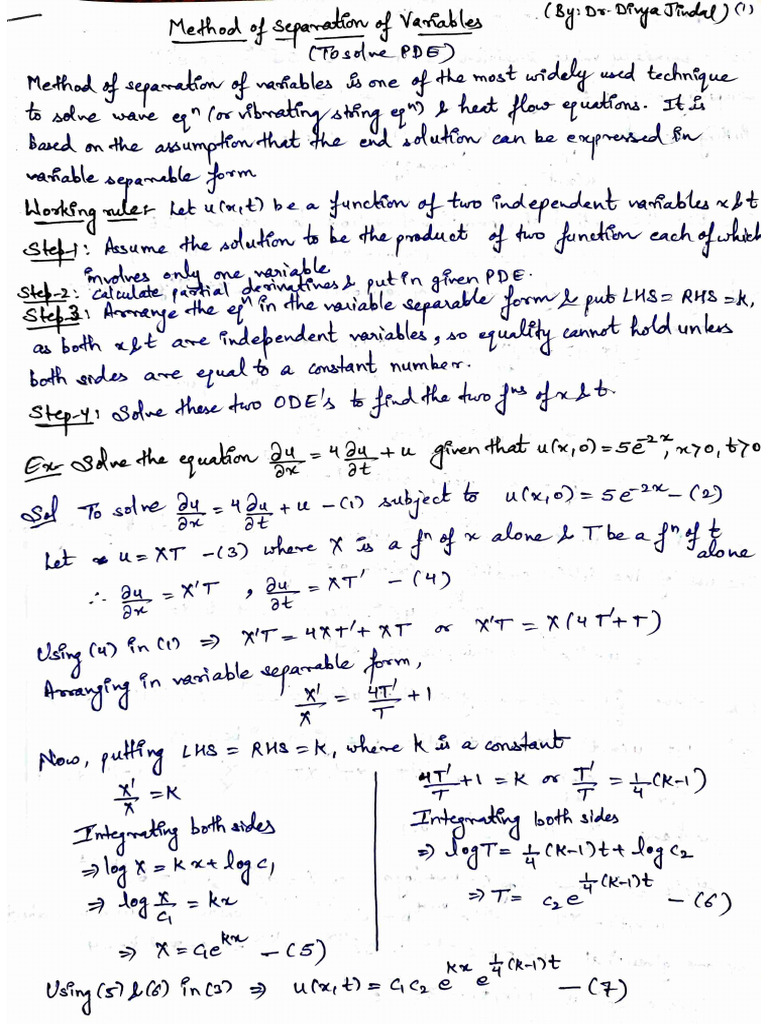 Method of Separation of Variables (By: Dr. Divya Jindal) (1)
(To solve PDE)
Method of separation of variables is one of the most widely used technique
to solve wave eqⁿ (or vibrating string eqⁿ) & heat flow equations. It is
based on the assumption that the end solution can be expressed in
variable separable form
Working rule:- Let u(x,t) be a function of two independent variables x & t
Step-1: Assume the solution to be the product of two function each of which
involves only one variable
Step-2: Calculate partial derivatives & put in given PDE.
Step 3: Arrange the eqⁿ in the variable separable form & put LHS = RHS = K,
as both x & t are independent variables, so equality cannot hold unless
both sides are equal to a constant number.
Step-4: Solve these two ODE's to find the two fⁿˢ of x & t.
Ex Solve the equation ∂u/∂x = 4 ∂u/∂t + u given that u(x,0) = 5e^{-2x}, x>0, t>0
Sol To solve ∂u/∂x = 4 ∂u/∂t + u –(1) subject to u(x,0) = 5e^{-2x} –(2)
Let u = XT –(3) where X is a fⁿ of x alone & T be a fⁿ of t alone
∴ ∂u/∂x = X'T , ∂u/∂t = XT' –(4)
Using (4) in (1) ⇒ X'T = 4XT' + XT or X'T = X(4T'+T)
Arranging in variable separable form,
X'/X = 4T'/T + 1
Now, putting LHS = RHS = K, where K is a constant
X'/X = K
Integrating both sides
⇒ log X = Kx + log c₁
⇒ log X/c₁ = Kx
⇒ X = c₁e^{Kx} –(5)
4T'/T + 1 = K or T'/T = 1/4 (K-1)
Integrating both sides
⇒ log T = 1/4 (K-1)t + log c₂
⇒ T = c₂ e^{1/4 (K-1)t} –(6)
Using (5) & (6) in (3) ⇒ u(x,t) = c₁c₂ e^{Kx} e^{1/4 (K-1)t} –(7)